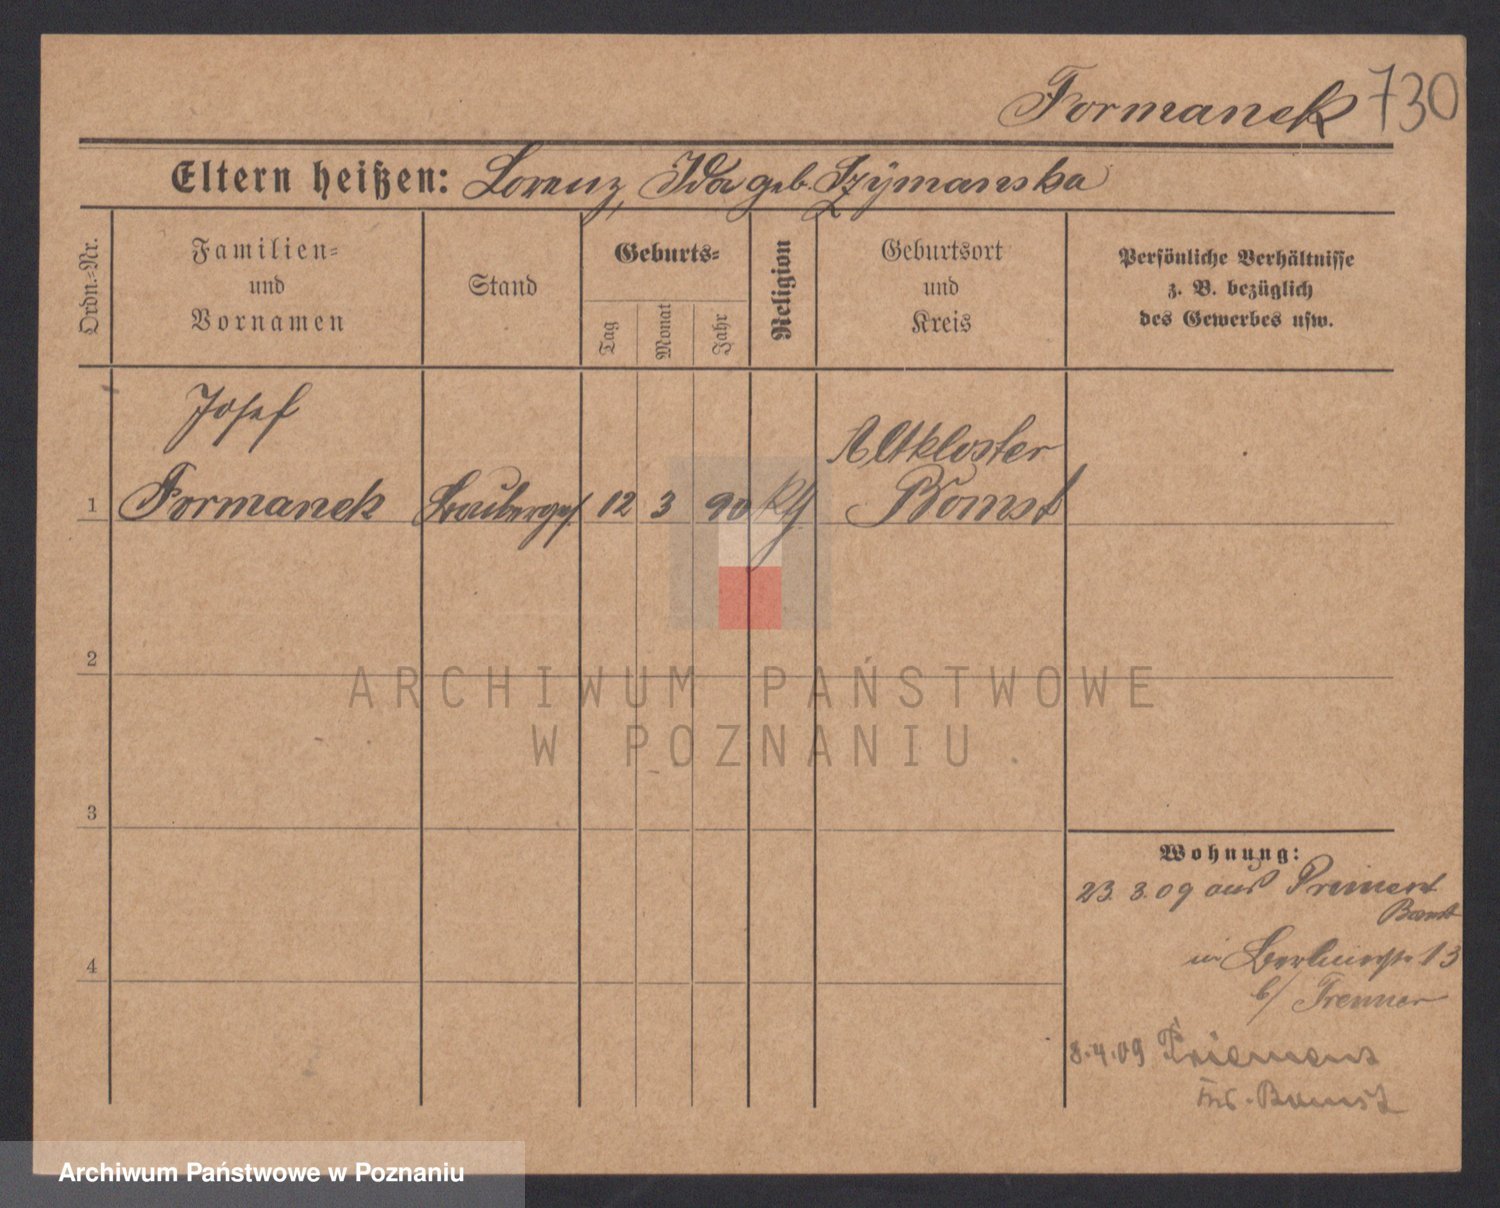 Formanek 730
Eltern heißen: Lorenz, Ida geb. Szymanska
Ordn.-Nr.
Familien-
und
Vornamen
Stand
Geburts-
Tag
Monat
Jahr
Religion
Geburtsort
und
Kreis
Persönliche Verhältnisse
z. B. bezüglich
des Gewerbes usw.
Josef
Altkloster
1 Formanek 12 3 90 Bomst
2
ARCHIWUM PAŃSTWOWE
W POZNANIU
3
Wohnung:
23. 3. 09 aus Priment
Bomst
in Berlinerstr. 13
b/
4
8.4.09 Priement
Bomst
Archiwum Państwowe w Poznaniu